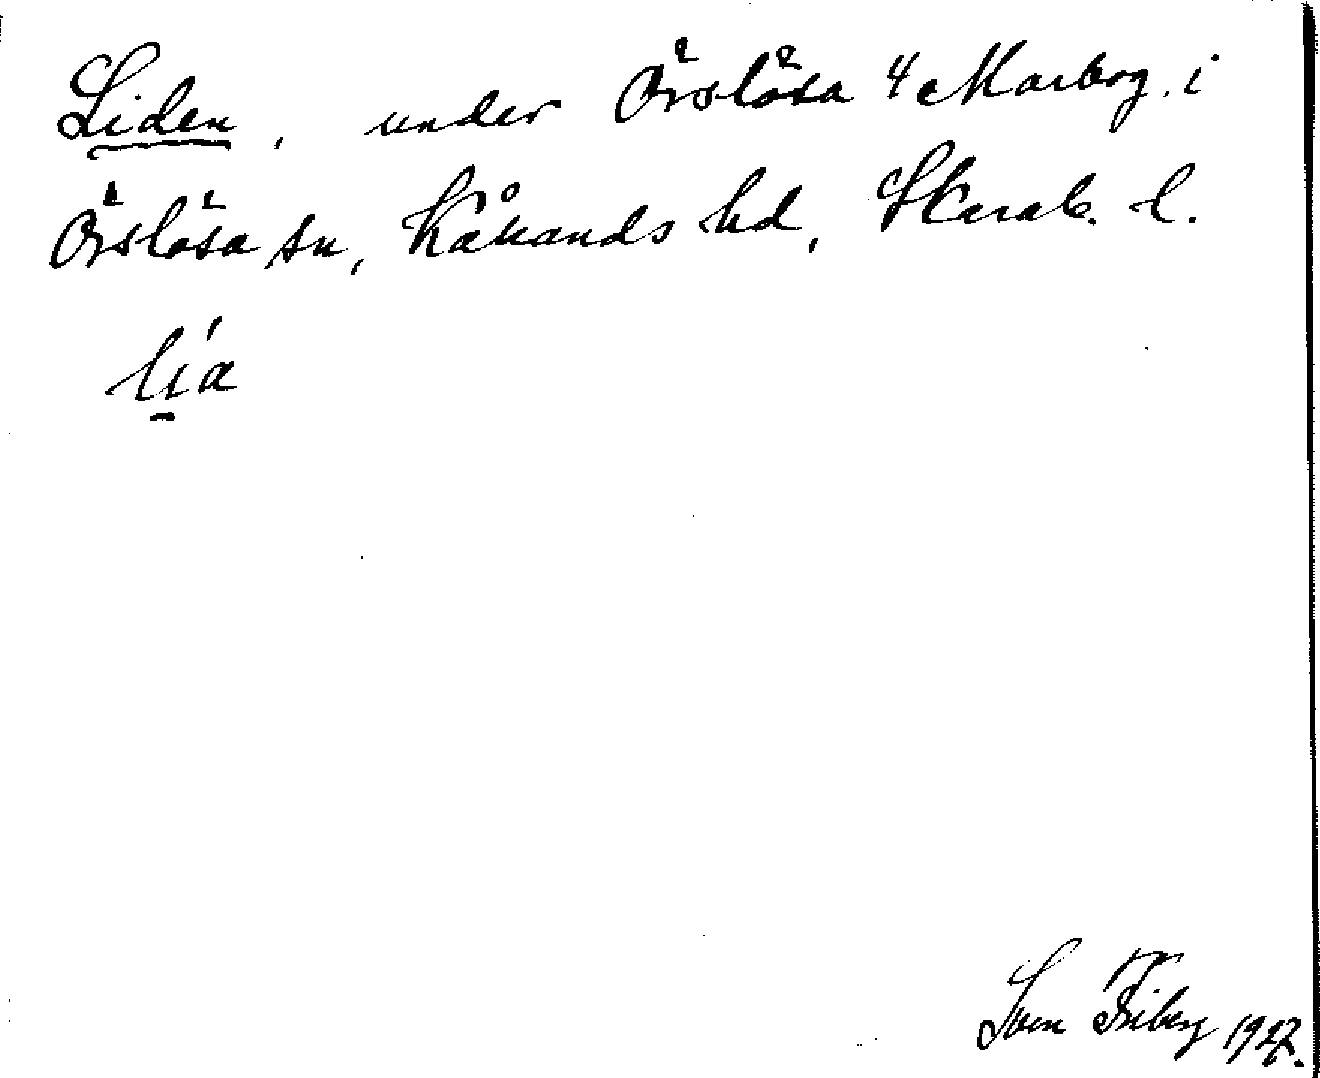 Liden, under Örslösa 4 Marbog. i
Örslösa sn, Kållands hd, Skarab. l.
lia
Sven Friberg 1927.